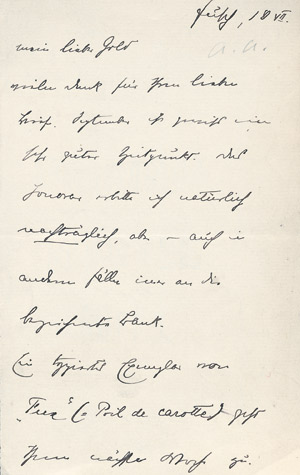 Fusch, 18 VII.
mein lieber Gold
vielen Dank für Ihren lieben
Brief. September ist gewiss ein
sehr guter Zeitpunkt. Das
Honorar erbitte ich natürlich
nachträglich, aber – auch in
andern Fällen immer an die
Bank.
Ein Exemplar von
"Fuxs" (= Poil de carotte) geht
Ihnen nächste Woche zu.